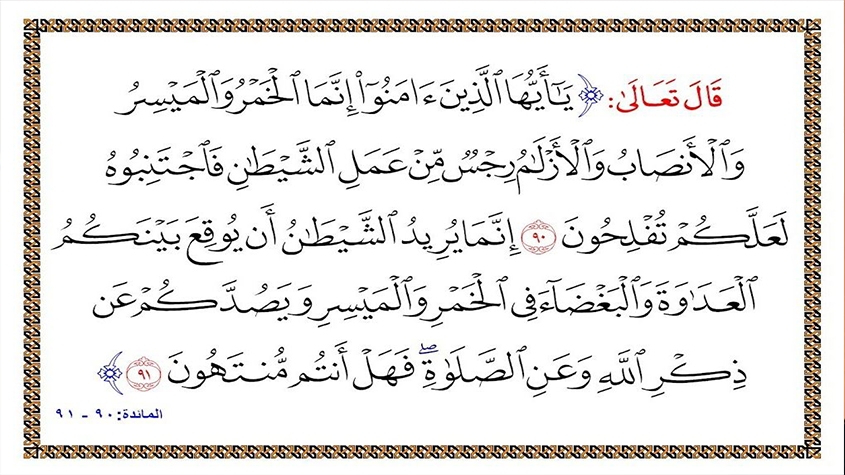 قَالَ تَعَالَىٰ: ﴿ يَـٰٓأَيُّهَا ٱلَّذِينَ ءَامَنُوٓا۟ إِنَّمَا ٱلْخَمْرُ وَٱلْمَيْسِرُ
وَٱلْأَنصَابُ وَٱلْأَزْلَـٰمُ رِجْسٌ مِّنْ عَمَلِ ٱلشَّيْطَـٰنِ فَٱجْتَنِبُوهُ
لَعَلَّكُمْ تُفْلِحُونَ ٩٠ إِنَّمَا يُرِيدُ ٱلشَّيْطَـٰنُ أَن يُوقِعَ بَيْنَكُمُ
ٱلْعَدَٰوَةَ وَٱلْبَغْضَآءَ فِى ٱلْخَمْرِ وَٱلْمَيْسِرِ وَيَصُدَّكُمْ عَن
ذِكْرِ ٱللَّهِ وَعَنِ ٱلصَّلَوٰةِ ۖ فَهَلْ أَنتُم مُّنتَهُونَ ٩١ ﴾
المائدة: ٩٠ - ٩١